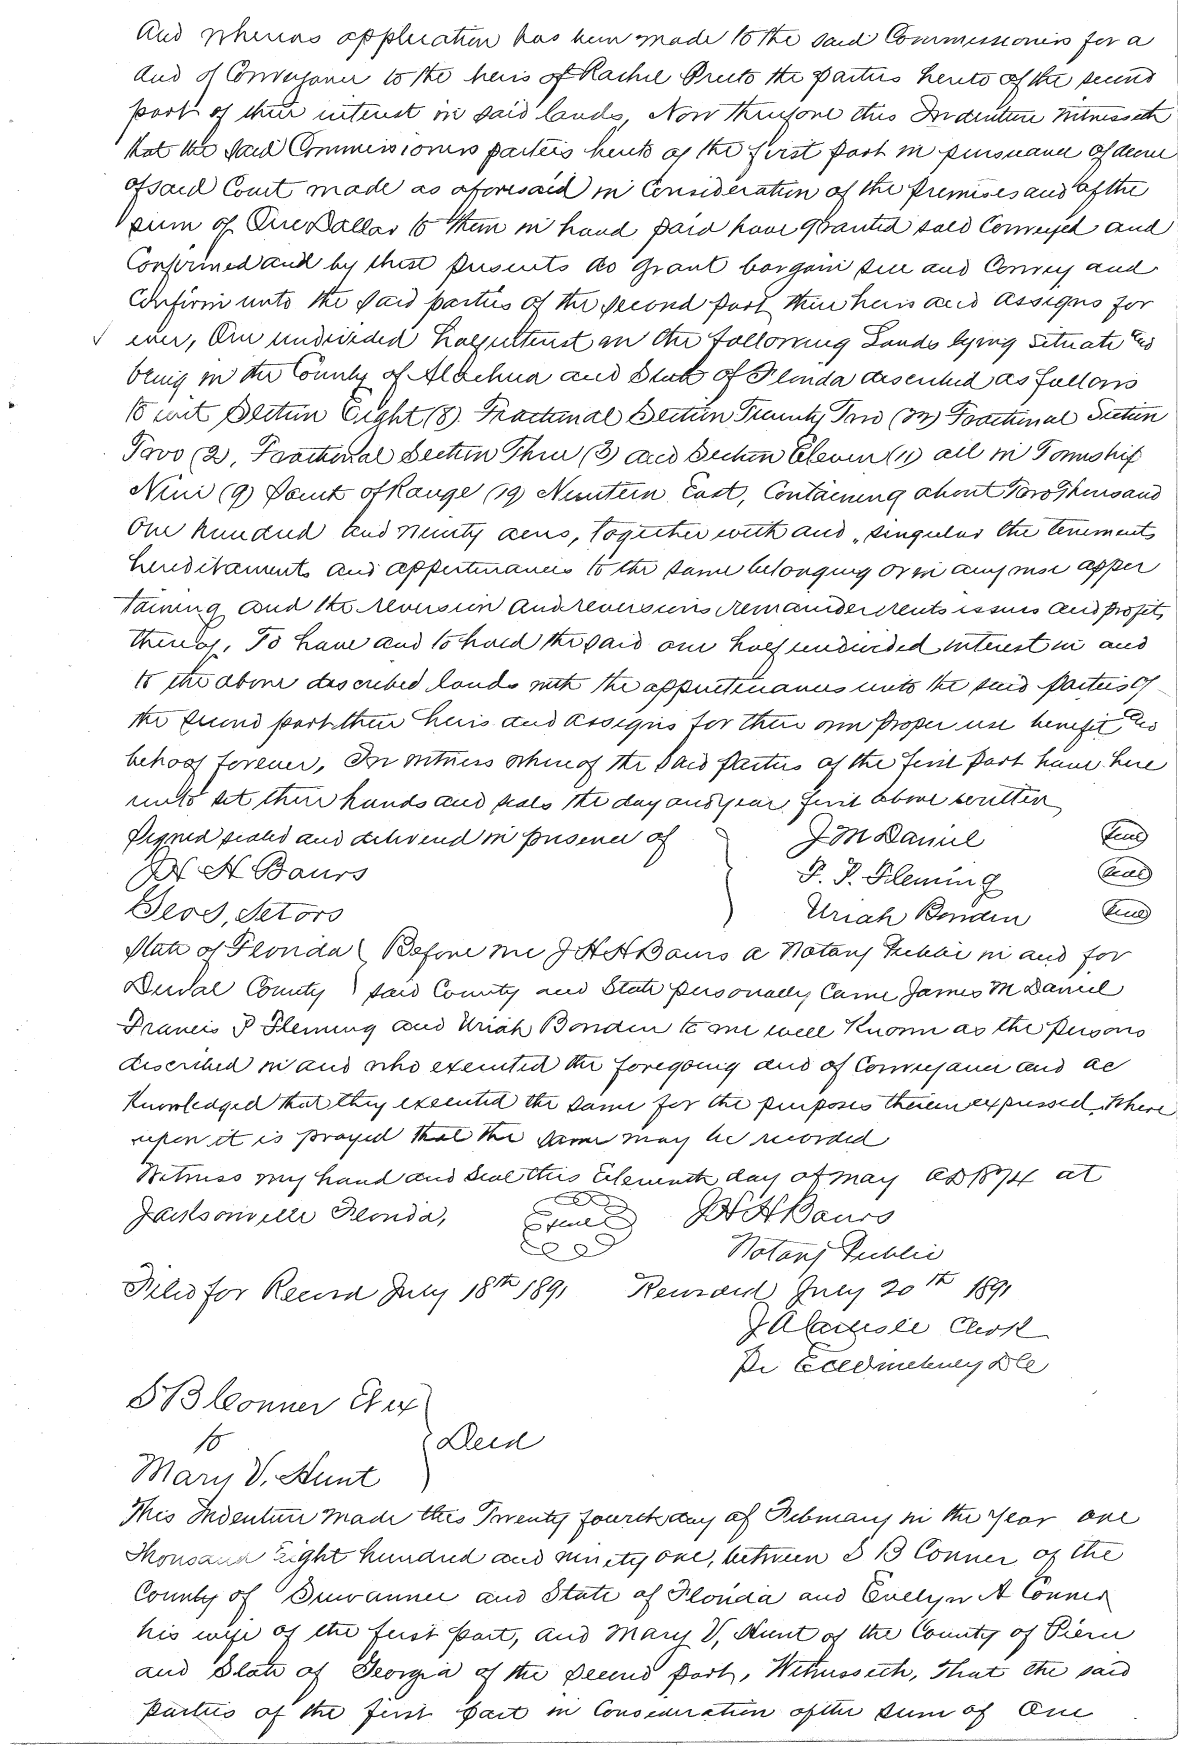 And whereas application has been made to the said Commissioners for a
deed of Conveyance to the heirs of Rachel Precto the parties hereto of the second
part of their interest in said lands, Now therefore this Indenture Witnesseth
that the said Commissioners parties hereto of the first part in pursuance of decree
of said Court made as aforesaid in Consideration of the premises and of the
sum of One Dollar to them in hand paid have granted sold Conveyed and
Confirmed and by these presents do grant bargain sell and Convey and
Confirm unto the said parties of the second part their heirs and assigns for
ever, One undivided half interest in the following Lands lying situate and
being in the County of Alachua and State of Florida described as follows
to wit Section Eight (8) Fractional Section Twenty Two (22) Fractional Section
Two (2, Fractional Section Three (3) and Section Eleven (11) all in Township
Nine (9) South of Range (19) Nineteen East, Containing about Two Thousand
One hundred and ninety acres, together with and singular the tenements
hereditaments and appertenances to the same belonging or in any wise apper
taining and the reversion and reversions remainder rents issues and profits
thereof, To have and to hold the said one half undivided interest in and
to the above described lands with the appurtenances unto the said parties of
the second part their heirs and assigns for their own proper use benefit and
behoof forever, In witness whereof the said parties of the first part have here
unto set their hands and seals the day and year first above written
Signed sealed and delivered in presence of J M Daniel seal
J H H Bours F. P. Fleming seal
Geo S, Uriah Bowden seal
State of Florida Before me J H H Bours a Notary Public in and for
Duval County said County and State personally Came James M Daniel
Francis P Fleming and Uriah Bowden to me well Known as the persons
described in and who executed the foregoing deed of Conveyance and ac
knowledged that they executed the same for the purposes therein expressed, Where
upon it is prayed that the same may be recorded
Witness my hand and Seal this Eleventh day of May AD 1874 at
Jacksonville Florida, Seal J H H Bours
Notary Public
Filed for Record July 18th 1891 Recorded July 20th 1891
J A Carlisle Clerk
Pr DC
S B Conner Et ux
to Deed
Mary V. Hunt
This Indenture made this Twenty fourth day of February in the Year one
Thousand Eight hundred and ninety one, between S B Conner of the
County of Suwannee and State of Florida and Evelyn A Conner
his wife of the first part, and Mary V, Hunt of the County of Pierce
and State of Georgia of the second part, Witnesseth, That the said
parties of the first part in Consideration of the sum of One